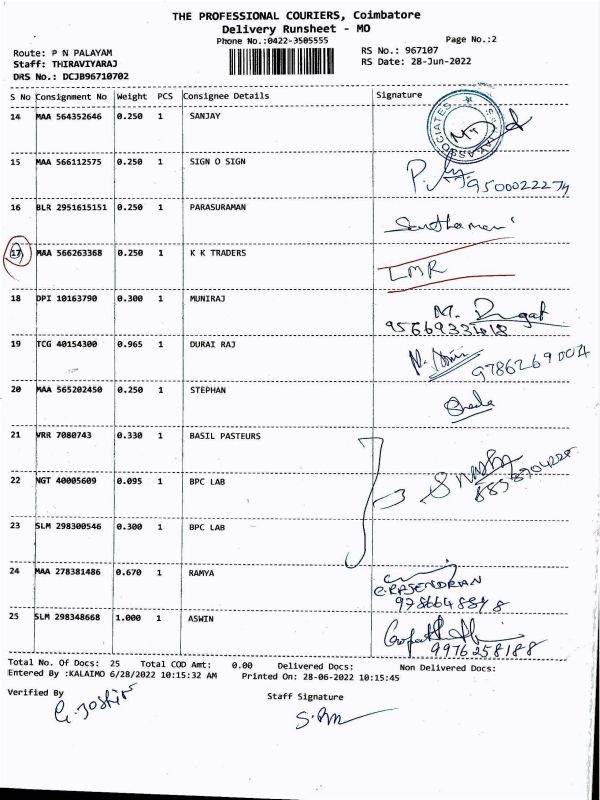 THE PROFESSIONAL COURIERS, Coimbatore
Delivery Runsheet - MO
Phone No.:0422-3505555 Page No.:2
Route: P N PALAYAM RS No.: 967107
Staff: THIRAVIYARAJ RS Date: 28-Jun-2022
DRS No.: DCJB96710702
S No Consignment No Weight PCS Consignee Details Signature
14 MAA 564352646 0.250 1 SANJAY
15 MAA 566112575 0.250 1 SIGN O SIGN
9500022274
16 BLR 2951615151 0.250 1 PARASURAMAN
17 MAA 566263368 0.250 1 K K TRADERS
LMR
18 DPI 10163790 0.300 1 MUNIRAJ
19 TCG 40154300 0.965 1 DURAI RAJ
20 MAA 565202450 0.250 1 STEPHAN
21 VRR 7080743 0.330 1 BASIL PASTEURS
22 NGT 40005609 0.095 1 BPC LAB
23 SLM 298300546 0.300 1 BPC LAB
24 MAA 278381486 0.670 1 RAMYA
C. RAJENDRAN
25 SLM 298348668 1.000 1 ASWIN
9976258188
Total No. Of Docs: 25 Total COD Amt: 0.00 Delivered Docs: Non Delivered Docs:
Entered By :KALAIMO 6/28/2022 10:15:32 AM Printed On: 28-06-2022 10:15:45
Verified By Staff Signature